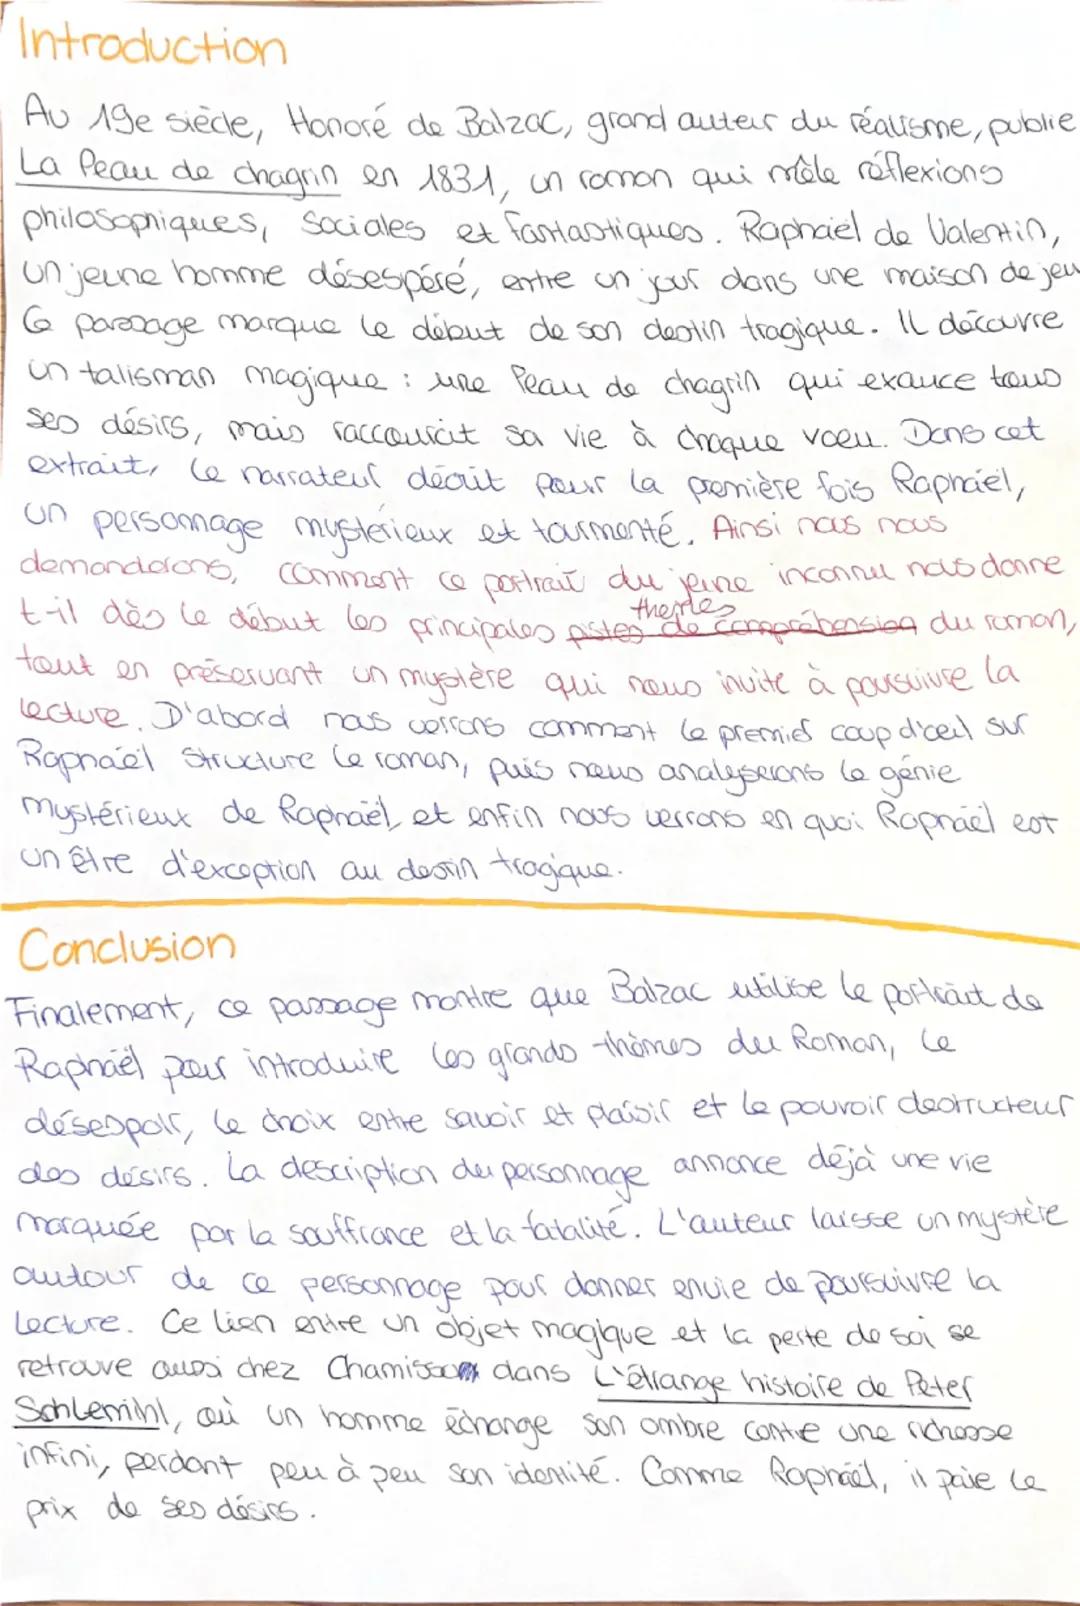 Introduction
Au 19e siècle, Honoré de Balzac, grand auteur du réalisme, publie
La Peau de chagrin en 1831, un roman qui mêle réflexions
philosophiques, sociales et fantastiques. Raphaël de Valentin,
un jeune homme désespéré, entre un jour dans une maison de jeu
Ce passage marque le début de son destin tragique. Il découvre
un talisman magique : une Peau de chagrin qui exauce tous
ses désirs, mais raccourcit sa vie à chaque voeu. Dans cet
extrait, le narrateur décrit pour la première fois Raphaël,
un personnage mystérieux et tourmenté. Ainsi nous nous
demanderons, comment ce portrait du jeune inconnu nous donne
themes
t-il dès le début les principales pistes de compréhension du roman,
tout en préservant un mystère qui nous invite à poursuivre la
lecture. D'abord nous verrons comment le premier coup d'œil sur
Raphaël structure le roman, puis nous analyserons le génie
mystérieux de Raphaël, et enfin nous verrons en quoi Raphaël est
un être d'exception au destin tragique.
Conclusion
Finalement, ce passage montre que Balzac utilise le portrait de
Raphaël pour introduire les grands thèmes du Roman, le
désespoir, le choix entre savoir et plaisir et le pouvoir destructeur
des désirs. La description du personnage annonce déjà une vie
marquée par la souffrance et la fatalité. L'auteur laisse un mystère
autour de ce personnage pour donner envie de poursuivre la
lecture. Ce lien entre un objet magique et la perte de soi se
retrouve aussi chez Chamisso dans L'étrange histoire de Peter
Schlemihl, où un homme échange son ombre contre une richesse
infini, perdant peu à peu son identité. Comme Raphaël, il paie le
prix de ses désirs.